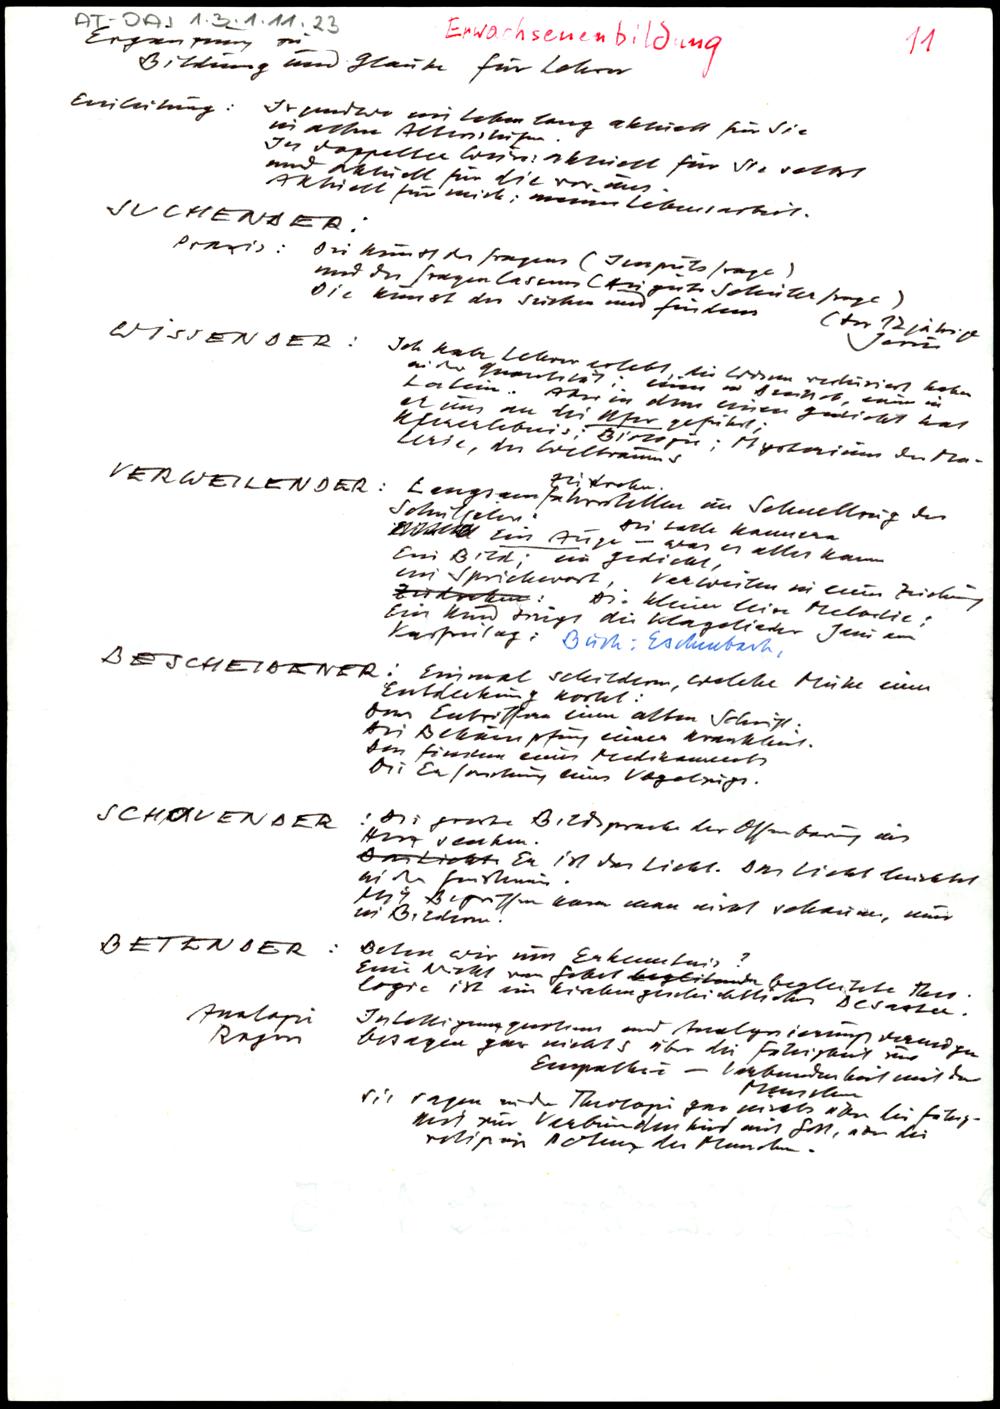 AT-DAJ 1.3.1.11.23
Erwachsenenbildung
11
Ergänzung zu
Bildung und Glaube für Lehrer
Einleitung: Irgendwo ein Leben lang aktuell für Sie
in allen Altersstufen.
In doppelter Weise: aktuell für Sie selbst
und aktuell für die vor uns.
Aktuell für mich: meine Lebensarbeit.
SUCHENDER:
Praxis: Die Kunst des Fragens (Impulsfrage)
und des Fragenlassens (die gute Schülerfrage)
Die Kunst des Suchens und Findens (der 12jährige
Jesus
WISSENDER: Ich habe Lehrer erlebt, die Wissen reduziert haben
in der Quantität: einen in Deutsch, einen in
Latein. Aber in dem einen Gedicht hat
er uns an die Ufer geführt;
Ufererlebnis: Biologie; Mysterium der Ma-
terie, des Weltraums
VERWEILENDER: Langsamfahrstellen im Schnellzug des
Zeitraben.
Schuljahres:
Die Kamera
Ein Auge – was es alles kann
Ein Bild; ein Gedicht,
ein Sprichwort, Verweilen in einer Zeichnung
Die kleine leise Melodie:
Ein Kind singt die Klagelieder Jesu am
Karfreitag: Buch: Eschenbach,
BESCHEIDENER: Einmal schildern, welche Mühe eine
Entdeckung kostet:
Das Entziffern einer alten Schrift.
Die Bekämpfung einer Krankheit.
Das Finden eines Medikaments
Die Erforschung eines Vogelzugs.
SCHAUENDER: Die große Bildsprache der Offenbarung ins
Herz senken.
Das Licht Er ist das Licht. Das Licht leuchtet
in der Finsternis.
Mit Begriffen kann man nicht schauen, nur
in Bildern!
BETENDER: Beten wir um Erkenntnis?
Eine nicht von Gebet begleitete Theo-
logie ist ein kirchengeschichtliches Desaster.
Analogie Intelligenzquotient und Analysierungsvermögen
besagen gar nichts über die Fähigkeit zur
Empathie – Verbundenheit mit den
Menschen
Sie sagen in der Theologie gar nichts über die Fähig-
keit zur Verbundenheit mit Gott, von der
religiösen des Menschen.